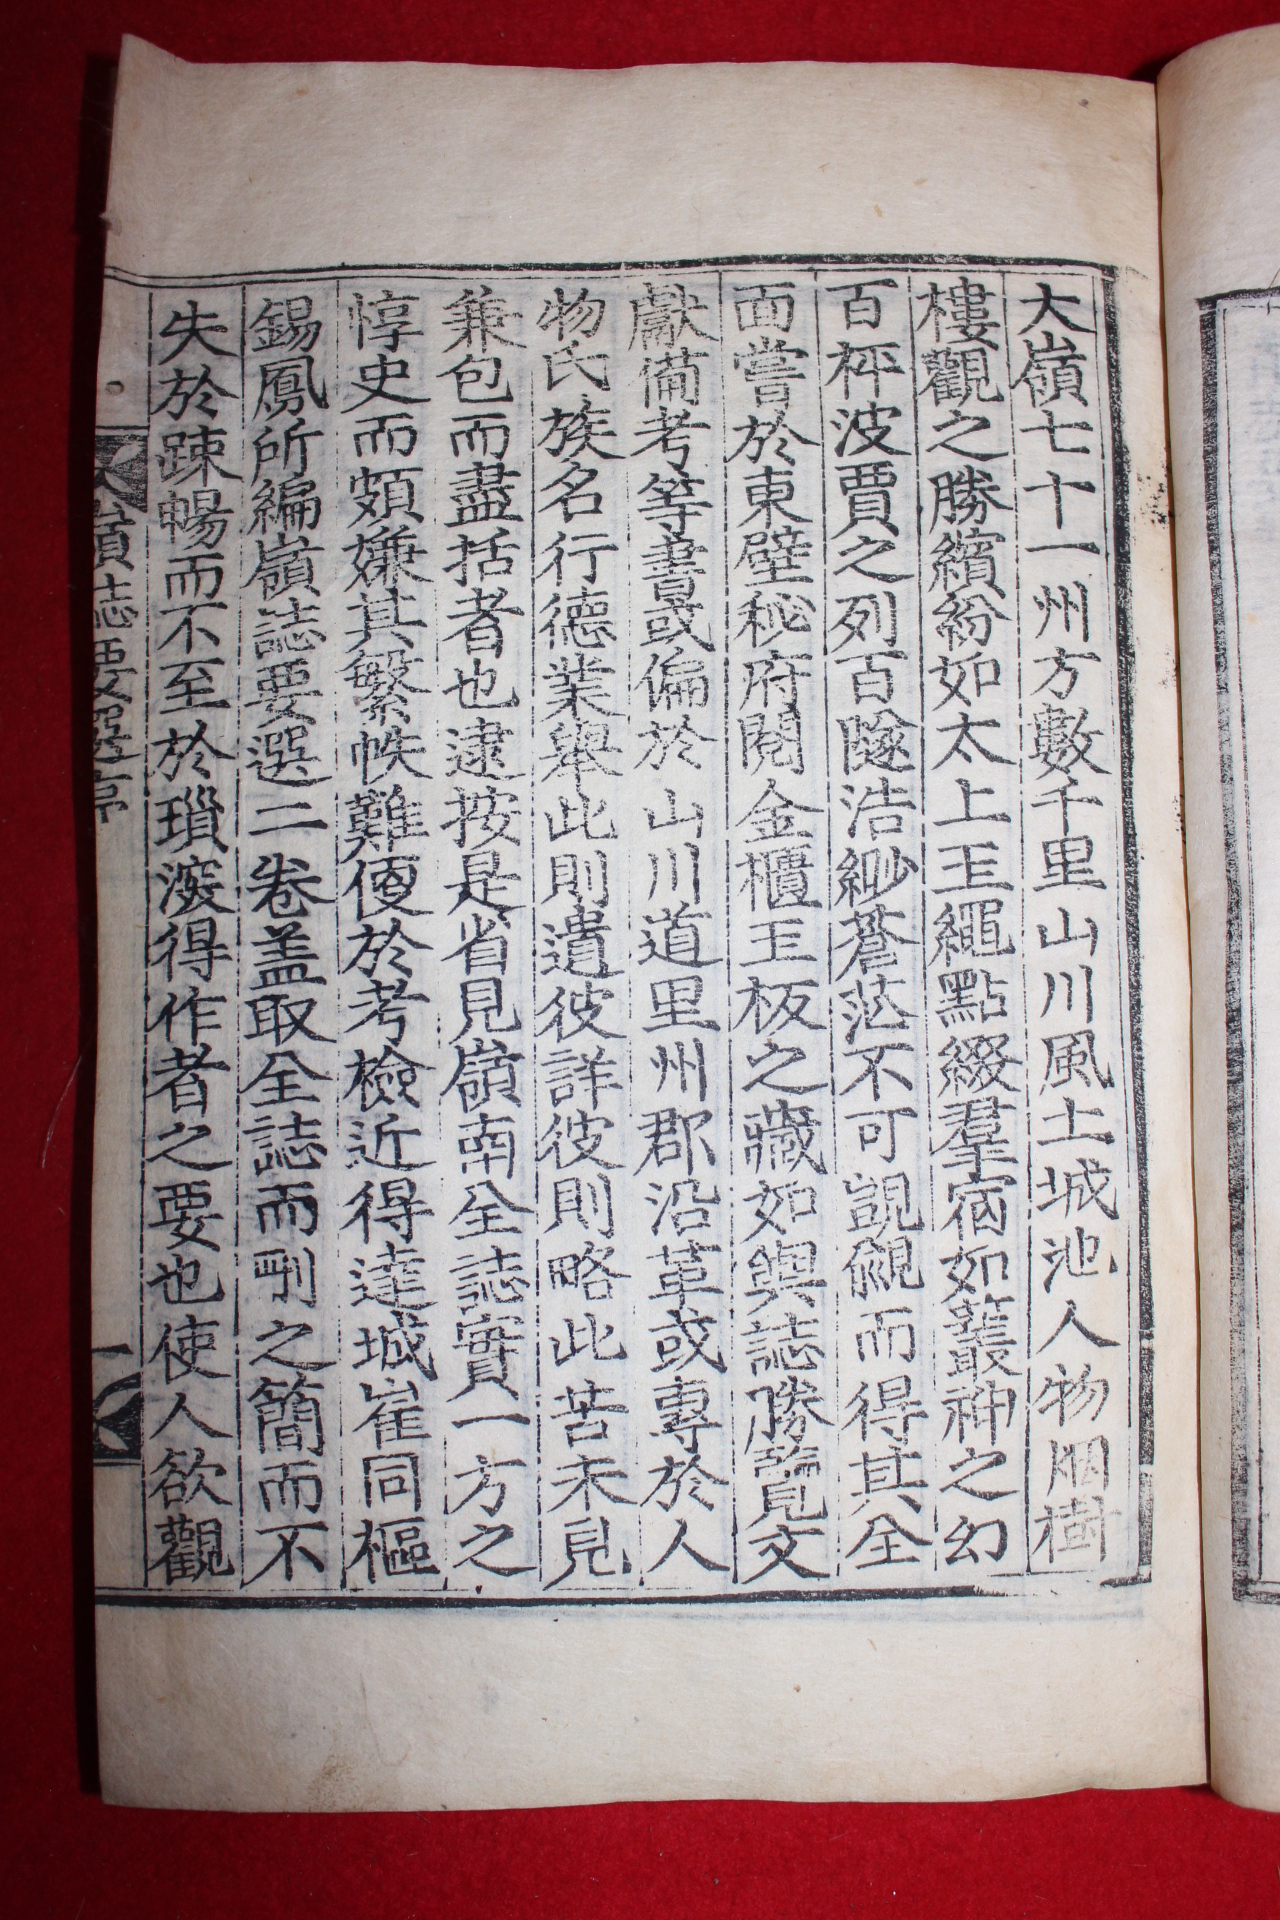 大嶺七十一州方數千里山川風土城池人物烟樹
樓觀之勝繽紛如太上玉繩點綴羣宿如叢神之幻
百枰波賈之列百隧浩緲蒼茫不可覬覦而得其全
面嘗於東壁秘府閱金櫃玉板之藏如輿誌勝覽文
獻備考等書或偏於山川道里州郡沿革或專於人
物氏族名行德業舉此則遺彼詳彼則略此苦未見
兼包而盡括者也逮按是省見嶺南全誌實一方之
惇史而頗嫌其繁帙難便於考檢近得達城崔同樞
錫鳳所編嶺誌要選二卷盖取全誌而刪之簡而不
失於踈暢而不至於瑣滚得作者之要也使人欲觀
嶺誌要選序
一